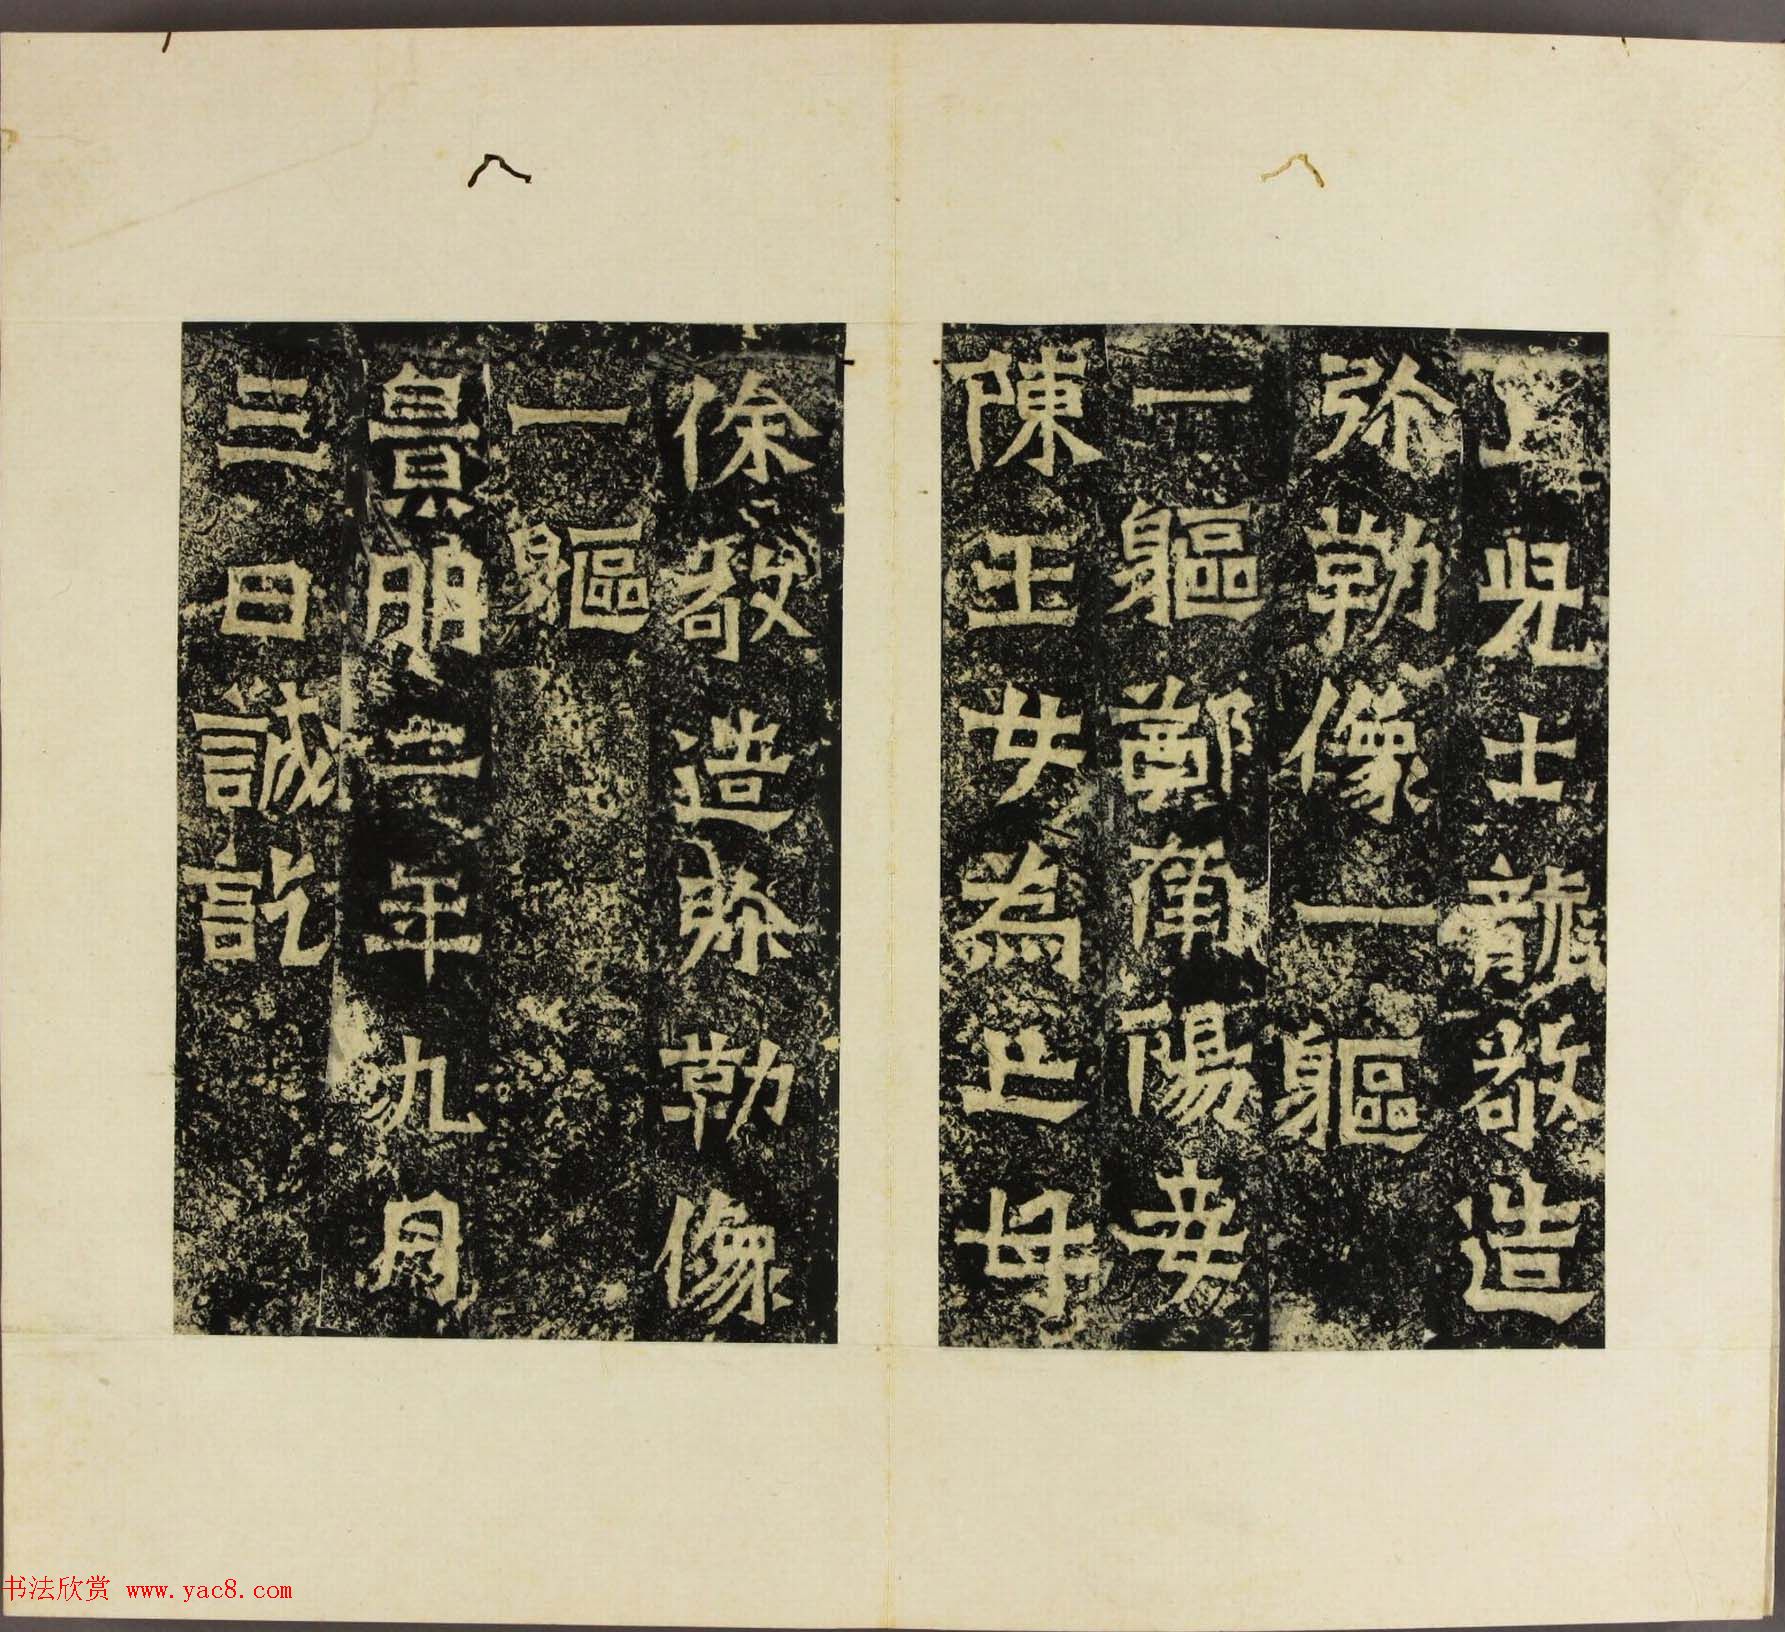 正光士敬造
弥勒像一軀
一軀鄭南陽妾
陳王女為亡母
徐敬造弥勒像
一軀
景明二年九月
三日誠訖
书法欣赏 www.yac8.com